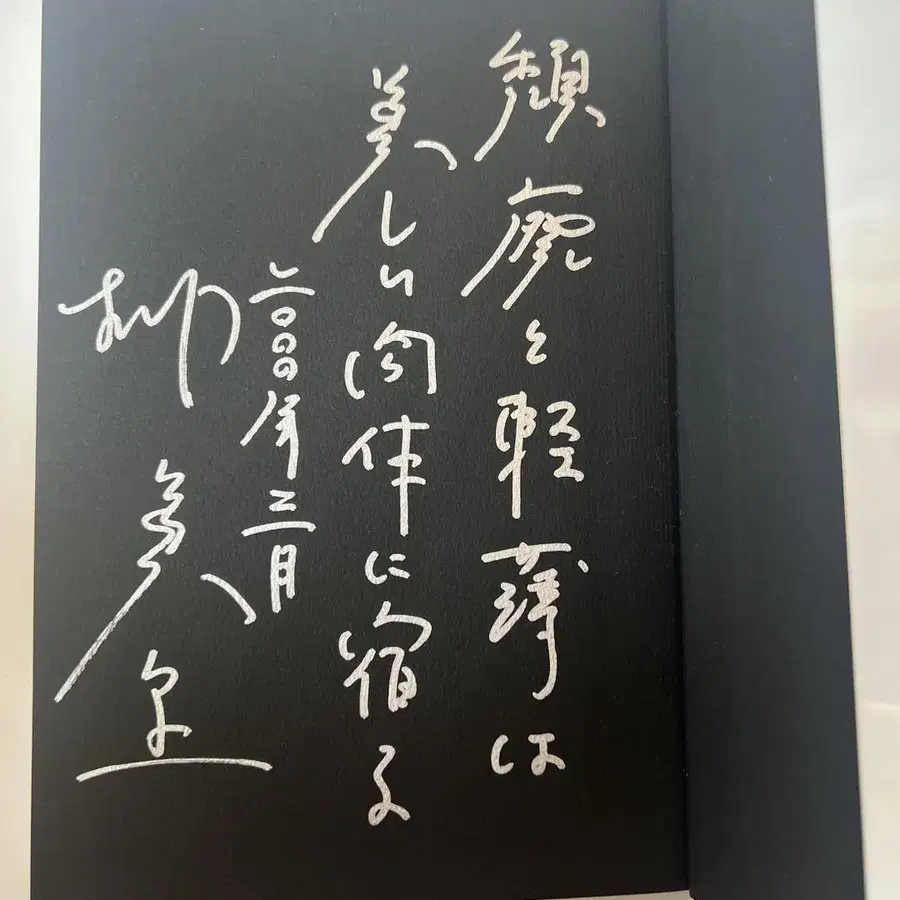 頽廃と軽薄は
美しい肉体に宿る
二〇〇〇年三月
柳美里